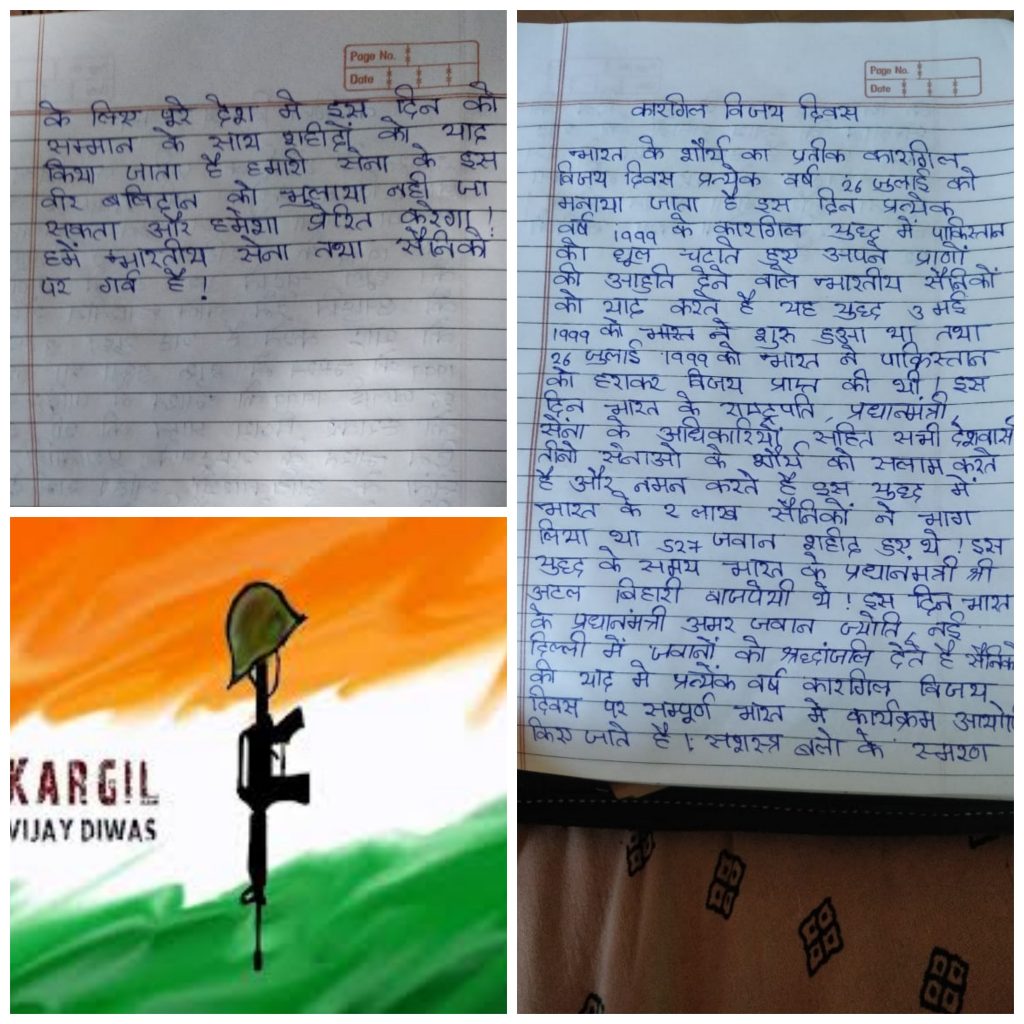 कारगिल विजय दिवस
भारत के शौर्य का प्रतीक कारगिल
विजय दिवस प्रत्येक वर्ष 26 जुलाई को
मनाया जाता है इस दिन प्रत्येक
वर्ष 1999 के कारगिल युद्ध में पाकिस्तान
को धूल चटाते हुए अपने प्राणों
की आहुति देने वाले भारतीय सैनिकों
को याद करते है यह युद्ध 3 मई
1999 को भारत ने शुरू हुआ था तथा
26 जुलाई 1999 को भारत ने पाकिस्तान
को हराकर विजय प्राप्त की थी! इस
दिन भारत के राष्ट्रपति, प्रधानमंत्री,
सेना के अधिकारियों सहित सभी देशवासी
तीनो सेनाओ के शौर्य को सलाम करते
है और नमन करते है इस युद्ध में
भारत के 2 लाख सैनिकों ने भाग
लिया था 527 जवान शहीद हुए थे! इस
युद्ध के समय भारत के प्रधानमंत्री श्री
अटल बिहारी वाजपेयी थे! इस दिन भारत
के प्रधानमंत्री अमर जवान ज्योति, नई
दिल्ली में जवानों को श्रद्धांजलि देते है सैनिको
की याद मे प्रत्येक वर्ष कारगिल विजय
दिवस पर सम्पूर्ण भारत मे कार्यक्रम आयोजि
किए जाते है! सशस्त्र बलो के स्मरण
Page No.
Date
के लिए पूरे देश मे इस दिन को
सम्मान के साथ शहीदों को याद
किया जाता है हमारी सेना के इस
वीर बलिदान को भुलाया नही जा
सकता और हमेशा प्रेरित करेगा!
हमें भारतीय सेना तथा सैनिको
पर गर्व है!
Page No.
Date
KARGIL
VIJAY DIWAS